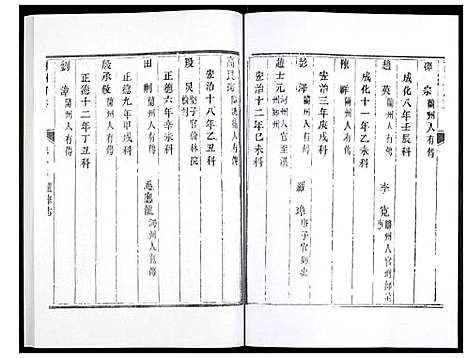 宗 蘭州人有傳
成化八年壬辰科
趙英 蘭州人有傳
李寬 蘭州人官
成化十一年乙未科
陳 州人有傳
弘治三年庚戌科
彭澤 蘭州人有傳
趙士元 河州人官至漢
弘治十二年己未科
弘治十八年乙丑科
段炅 堅子官翰林院
正德六年辛未科
田荊 蘭州人有傳
馬應龍 河州人有傳
正德九年甲戌科
殷承敘 蘭州人有傳
正德十二年丁丑科
劉漳 蘭州人有傳